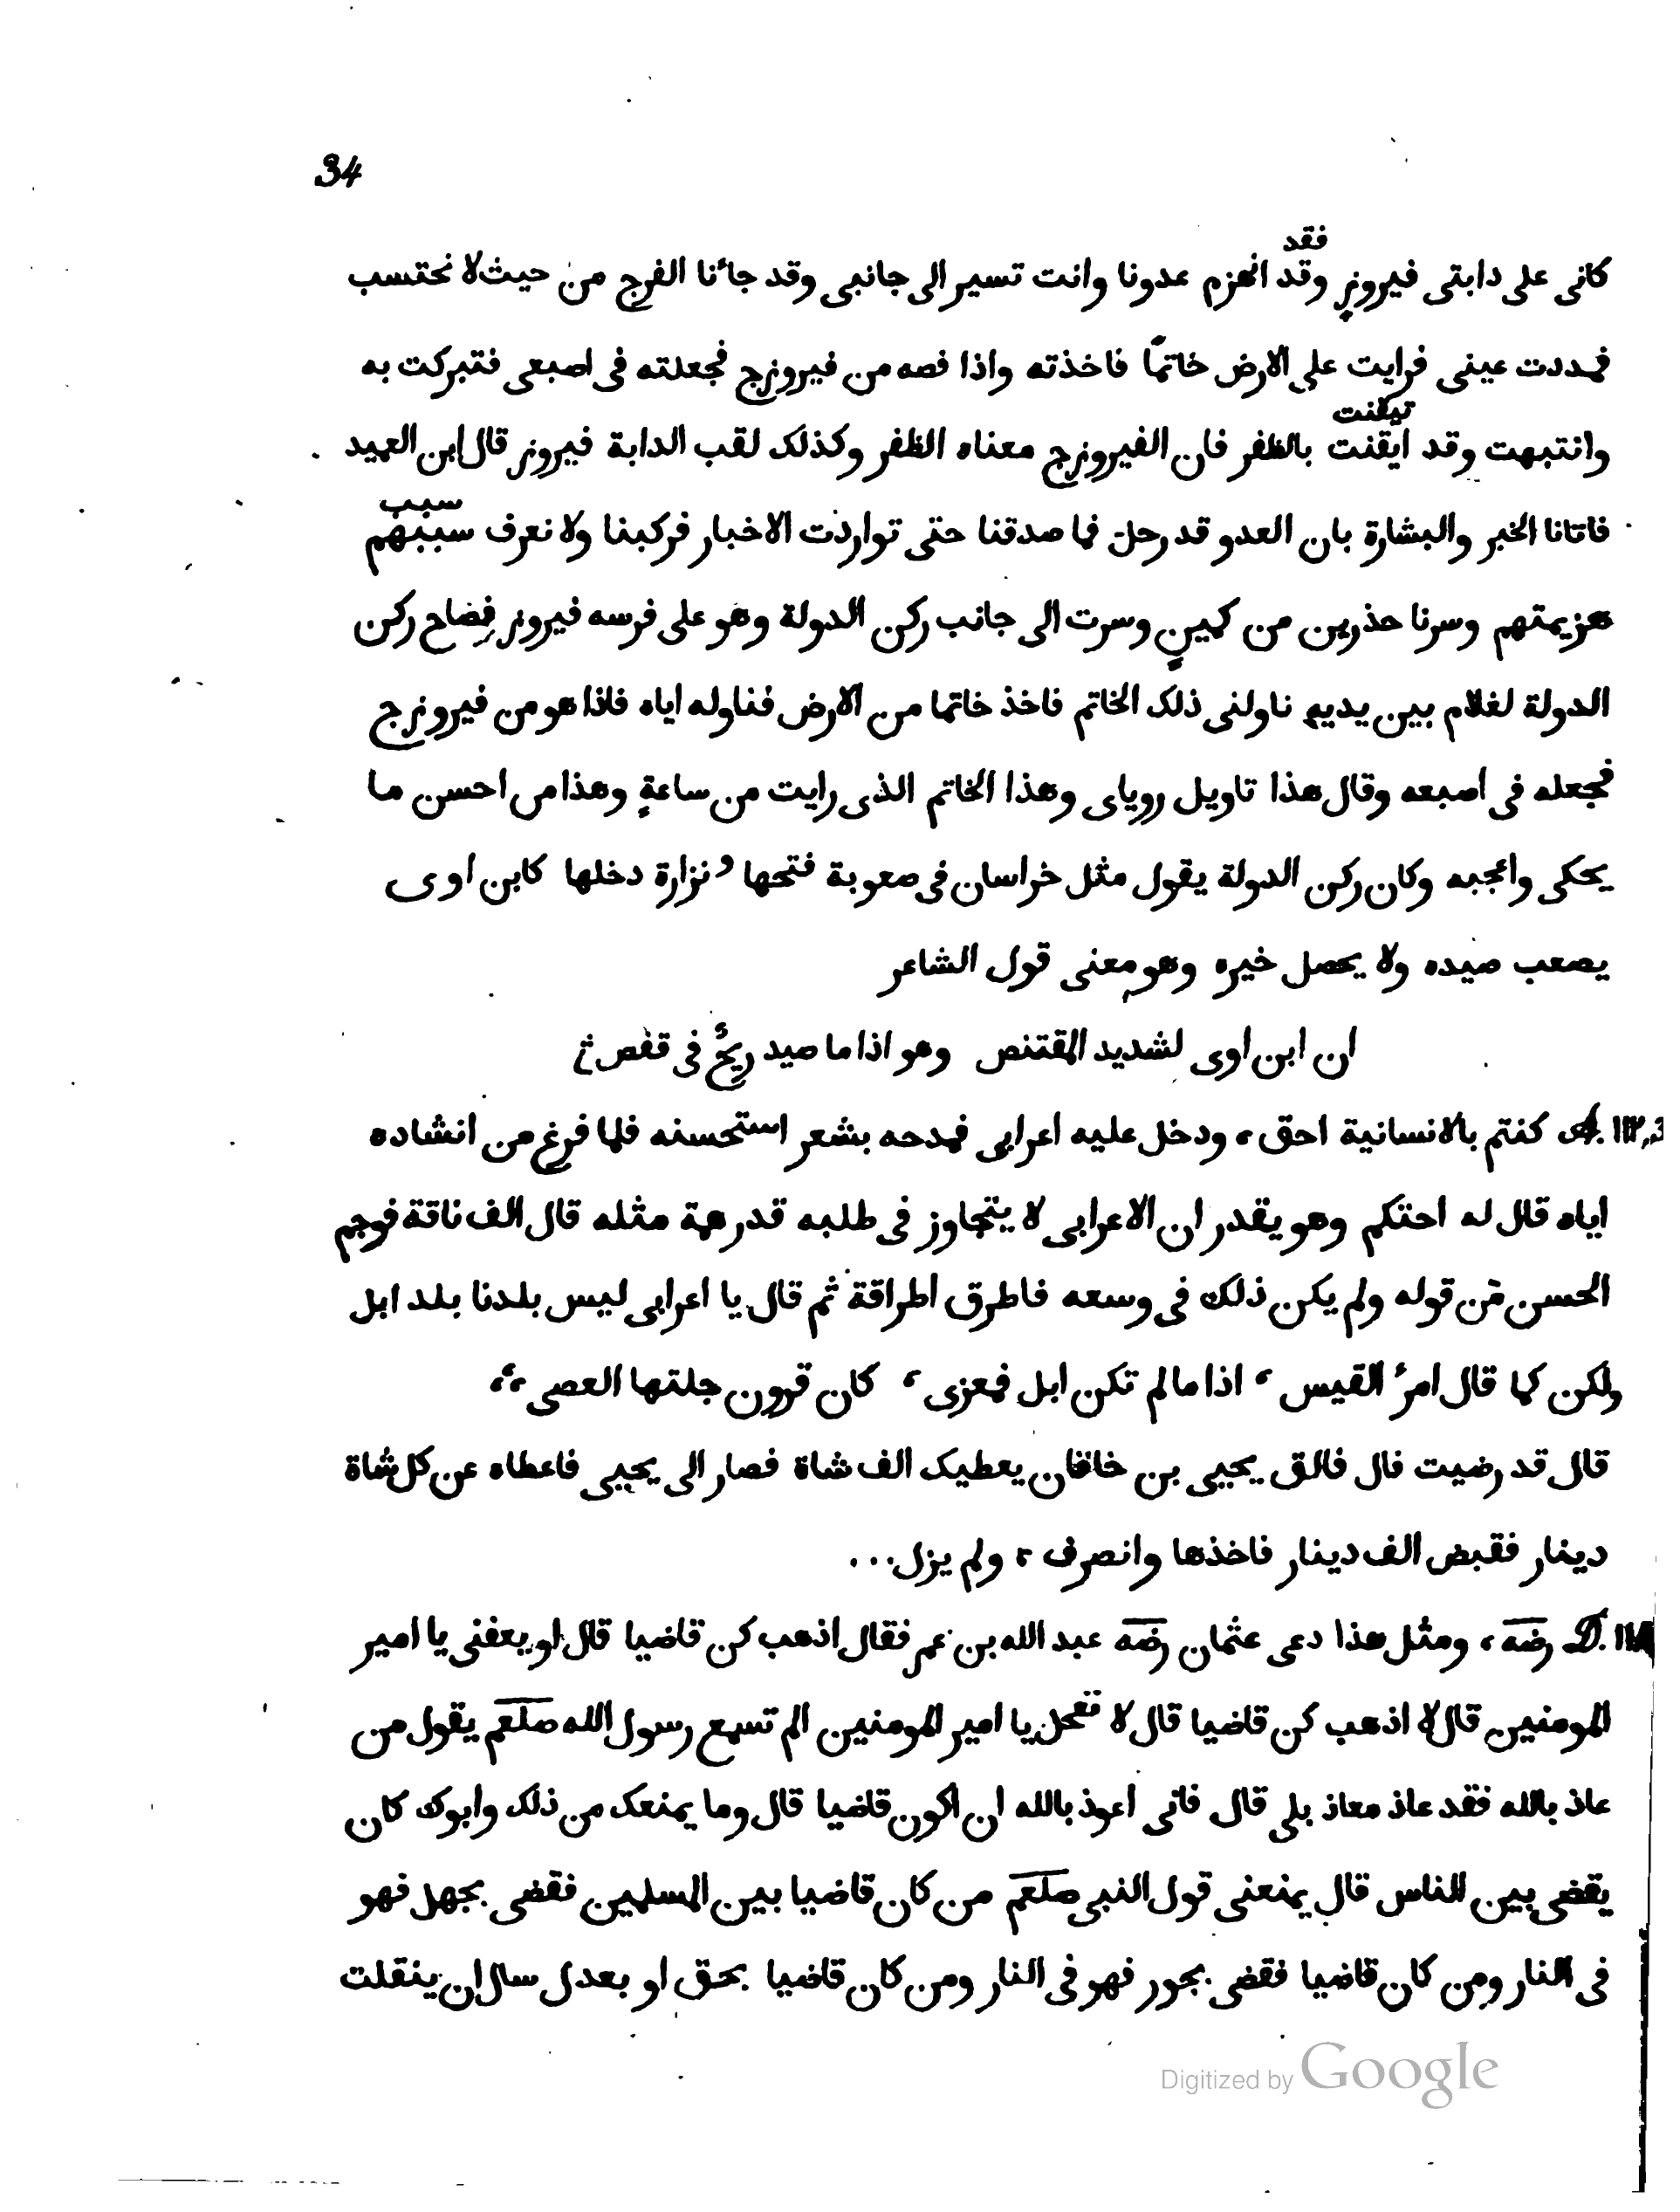 34
فقد
كانى على دابتى فيروز وقد انهزم عدونا وانت تسير الى جانبى وقد جاءنا الفرج من حيث لا نحتسب
فمددت عينى فرايت على الارض خاتمًا فاخذته واذا فصه من فيروزج فجعلته فى اصبعى فتبركت به
تيقنت
وانتبهت وقد ايقنت بالظفر فان الفيروزج معناه الظفر وكذلك لقب الدابة فيروز قال ابن العميد
سبب
فاتانا الخبر والبشارة بان العدو قد رحل فما صدقنا حتى تواردت الاخبار فركبنا ولا نعرف سببهم
هزيمتهم وسرنا حذرين من كمينٍ وسرت الى جانب ركن الدولة وهو على فرسه فيروز فصاح ركن
الدولة لغلام بين يديه ناولنى ذلك الخاتم فاخذ خاتما من الارض فناوله اياه فاذا هو من فيروزج
فجعله فى اصبعه وقال هذا تاويل روياى وهذا الخاتم الذى رايت من ساعةٍ وهذا من احسن ما
يحكى واعجبه وكان ركن الدولة يقول مثل خراسان فى صعوبة فتحها ونزارة دخلها كابن اوى
يصعب صيده ولا يحصل خيره وهو معنى قول الشاعر
ان ابن اوى لشديد المقتنص وهو اذا ما صيد ريحٌ فى قفص
A. ١١٢,3 كنتم بالانسانية احق، ودخل عليه اعرابى فمدحه بشعر استحسنه فلما فرغ من انشاده
اياه قال له احتكم وهو يقدر ان الاعرابى لا يتجاوز فى طلبه قدر همة مثله قال الف ناقة فوجم
الحسن من قوله ولم يكن ذلك فى وسعه فاطرق اطراقة ثم قال يا اعرابى ليس بلدنا بلد ابل
ولكن كما قال امرء القيس، اذا ما لم تكن ابل فمعزى، كان قرون جلتها العصى،
قال قد رضيت قال فالق يحيى بن خاقان يعطيك الف شاة فصار الى يحيى فاعطاه عن كل شاة
دينار فقبض الف دينار فاخذها وانصرف، ولم يزل...
D. رضه، ومثل هذا دعى عثمان رضه عبد الله بن عمر فقال اذهب كن قاضيا قال او يعفنى يا امير
المومنين قال لا اذهب كن قاضيا قال لا تعجل يا امير المومنين الم تسمع رسول الله صلعم يقول من
عاذ بالله فقد عاذ معاذ بلى قال فانى اعوذ بالله ان اكون قاضيا قال وما يمنعك من ذلك وابوك كان
يقضى بين الناس قال يمنعنى قول النبى صلعم من كان قاضيا بين المسلمين فقضى بجهل فهو
فى النار ومن كان قاضيا فقضى بجور فهو فى النار ومن كان قاضيا بحق او بعدل سال ان ينقلت
Digitized by Google